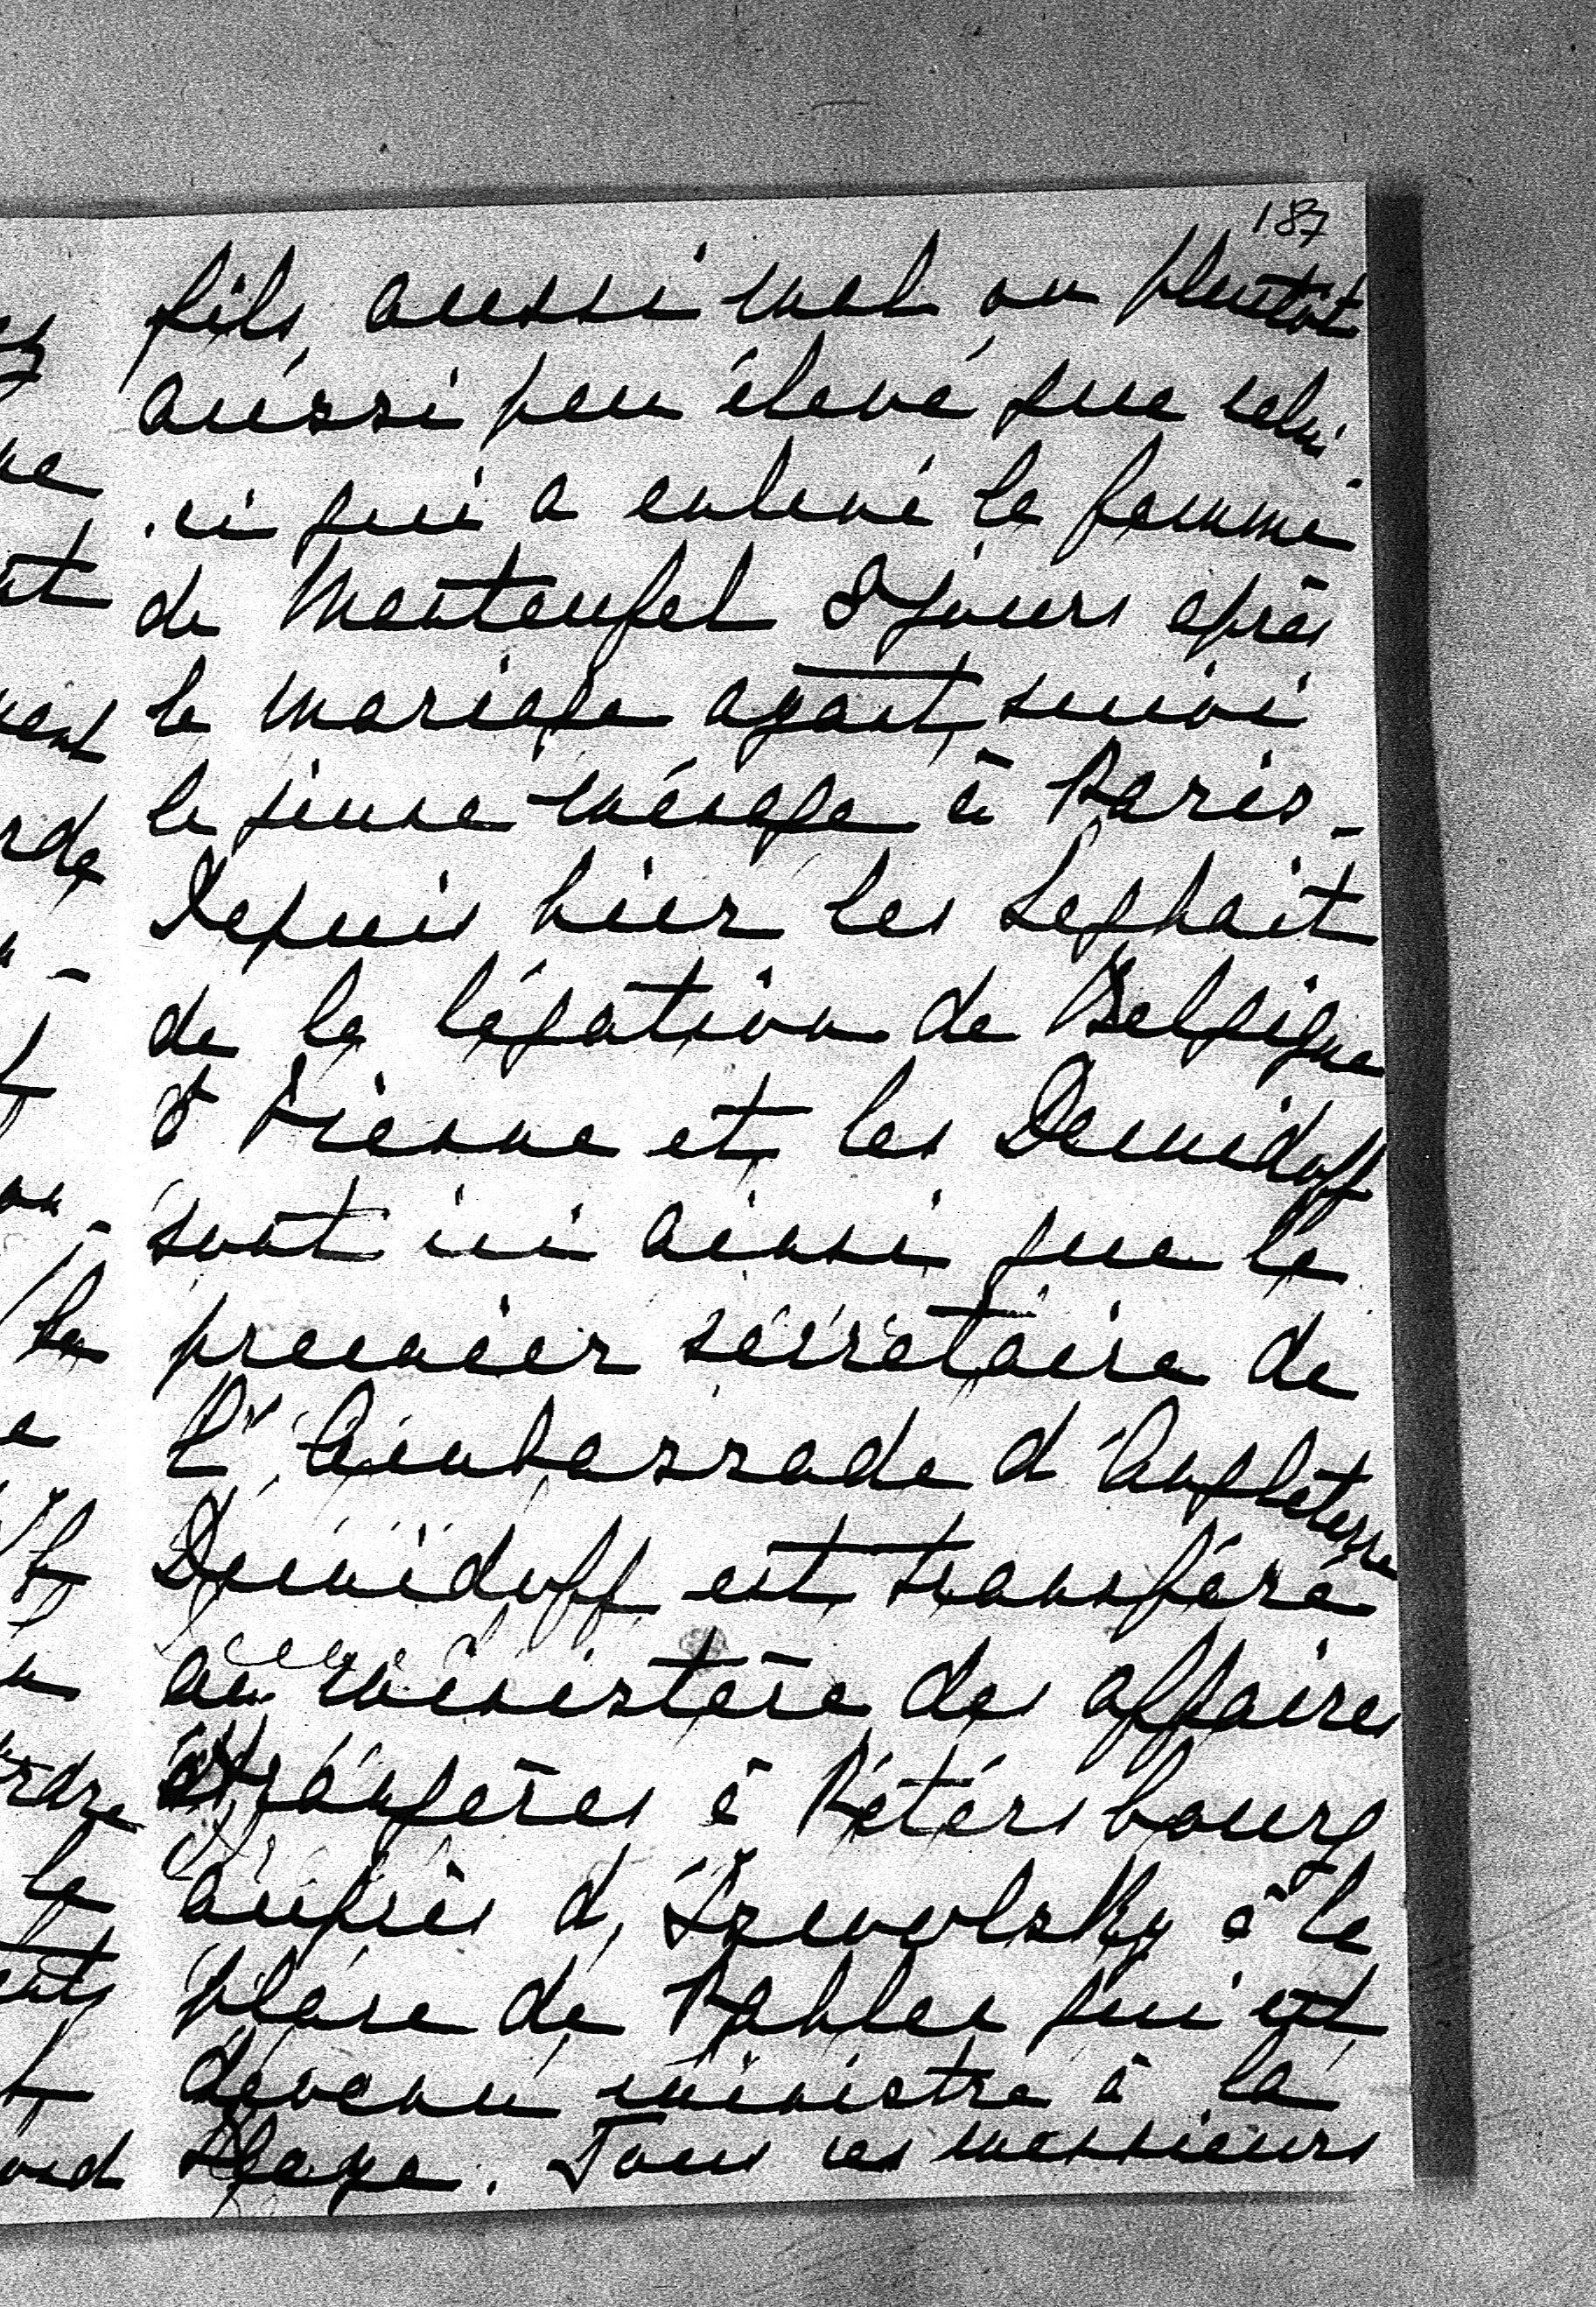 187
fils, aussi mal ou plutôt
aussi peu élevé que celui
-ci qui a enlevé la femme
de Manteufel 8 jours après
le mariage ayant suivi
le jeune ménage à Paris -
Depuis hier les
de la légation de Belgique
à Vienne et les Demidoff
sont ici ainsi que le
premier sécrétaire de
l'Ambassade d'Angleterre
Demidoff est transféré
au ministère des affaires
étrangères à Pétersbourg
auprès d'Iswolsky à la
place de Pahlen qui est
devenu ministre à la
Haye. Tous ces messieurs